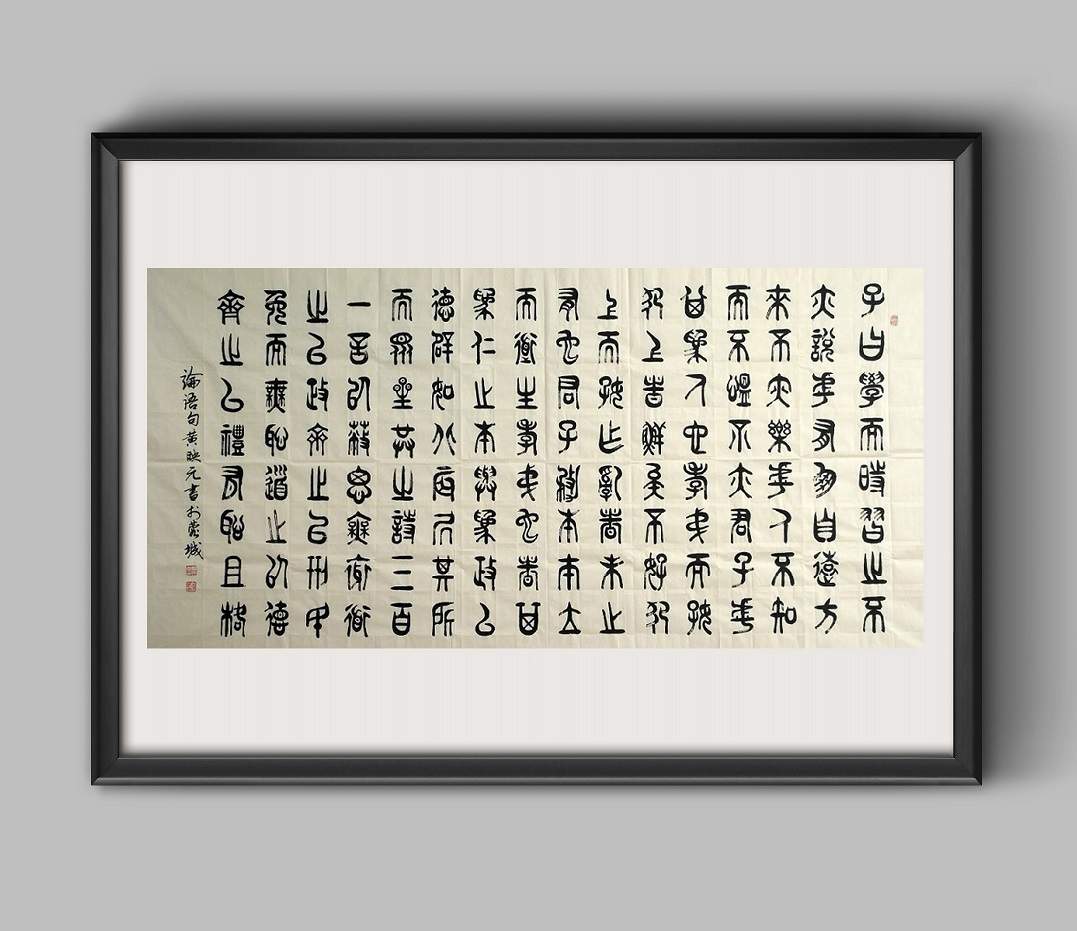 子曰學而時習之不
亦說乎有朋自遠方
來不亦樂乎人不知
而不慍不亦君子乎
其為人也孝弟而好
犯上者鮮矣不好犯
上而好作亂者未之
有也君子務本本立
而道生孝弟也者其
為仁之本與為政以
德譬如北辰居其所
而眾星共之詩三百
一言以蔽思無邪道
之以政齊之以刑民
免而無恥道之以德
齊之以禮有恥且格
論語句黄映元書於蒙城